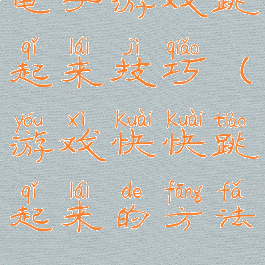 电子游戏跳
qǐ lái jì qiǎo
起来技巧（
yóu xì kuài kuài tiào
游戏快快跳
qǐ lái de fāng fǎ
起来的方法